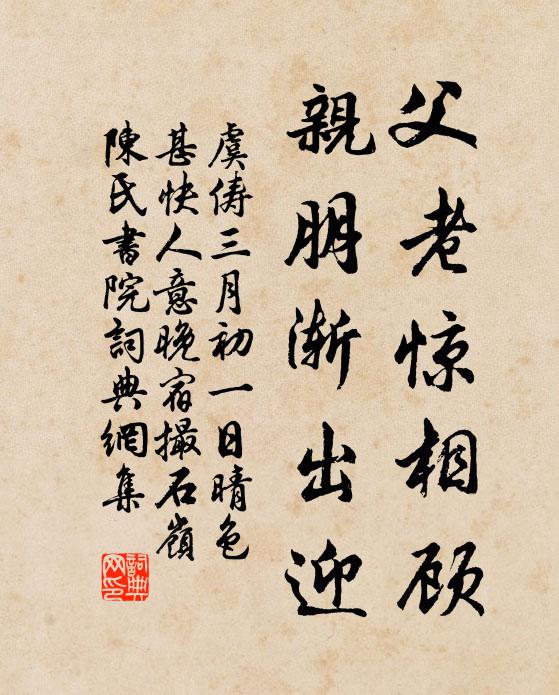 父老惊相顾
親朋渐出迎
虞俦三月初一日晴色
甚快人意晚宿撮石嶺
陳氏書院詞典網集
詞典
网印